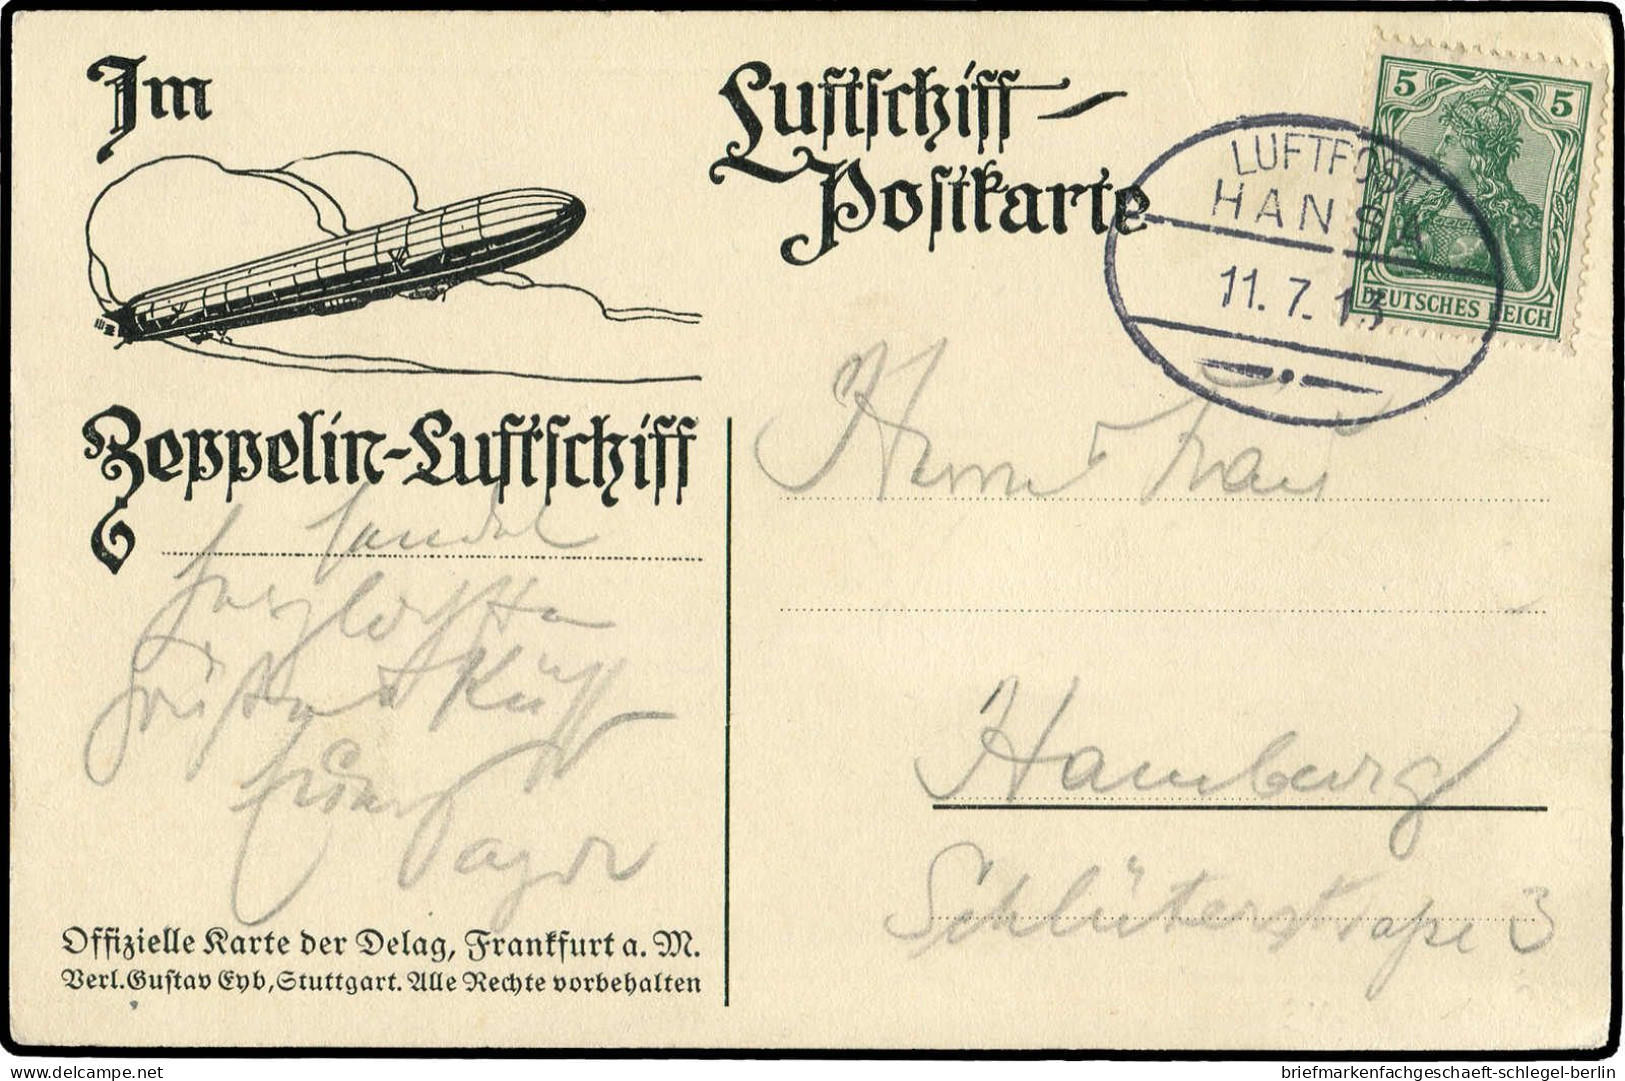 Im
Zeppelin-Luftschiff
sendet
herzlichsten
Luftschiff-
Postkarte
5 5
DEUTSCHES REICH
LUFTPOST
HANSA
11. 7. 13
Herrn
Hamburg
Schlüterstraße 3
Offizielle Karte der Delag, Frankfurt a. M.
Verl. Gustav Eyb, Stuttgart. Alle Rechte vorbehalten
delcampe.net
briefmarkenfachgeschaeft-schlegel-berlin